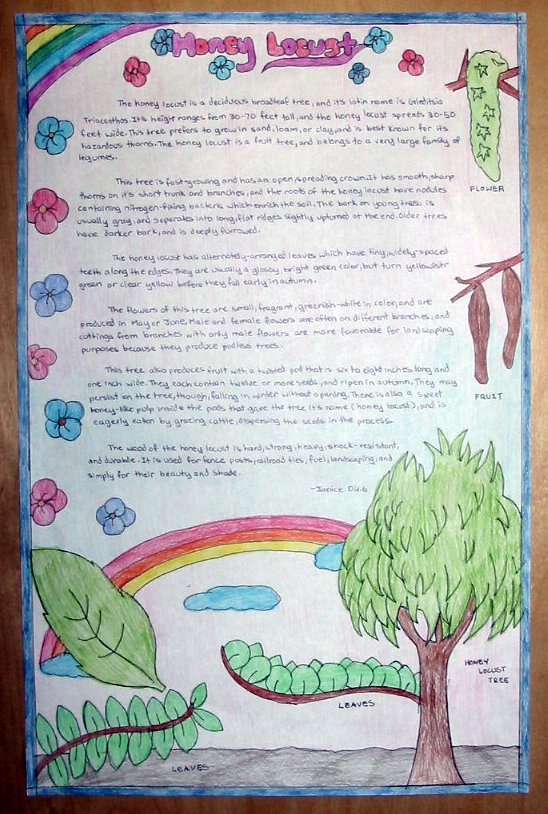 Honey Locust
The honey locust is a deciduous broadleaf tree, and it's latin name is Gleditsia
Triacanthos. It's height ranges from 30-70 feet tall, and the honey locust spreads 30-50
feet wide. This tree prefers to grow in sand, loam, or clay, and is best known for its
hazardous thorns. The honey locust is a fruit tree, and belongs to a very large family of
legumes.
This tree is fast-growing and has an open, spreading crown. It has smooth, sharp
thorns on it's short trunk and branches, and the roots of the honey locust have nodules
containing nitrogen-fixing bacteria which enrich the soil. The bark on young trees is
usually gray, and seperates into long, flat ridges slightly upturned at the end. Older trees
have darker bark, and is deeply furrowed.
The honey locust has alternately-arranged leaves which have tiny, widely-spaced
teeth along the edges. They are usually a glossy bright green color, but turn yellowish-
green or clear yellow before they fall early in autumn.
The flowers of this tree are small, fragrant, greenish-white in color, and are
produced in May or June. Male and female flowers are often on different branches, and
cuttings from branches with only male flowers are more favorable for landscaping
purposes because they produce podless trees.
This tree also produces fruit with a twisted pod that is six to eight inches long and
one inch wide. They each contain twelve or more seeds, and ripen in autumn. They may
persist on the tree, though, falling in winter without opening. There is also a sweet
honey-like pulp inside the pods that gave the tree it's name (honey locust), and is
eagerly eaten by grazing cattle, dispensing the seeds in the process.
The wood of the honey locust is hard, strong, heavy, shock-resistant,
and durable. It is used for fence posts, railroad ties, fuel, landscaping, and
simply for their beauty and shade.
~Janice Div.6
FLOWER
FRUIT
HONEY
LOCUST
TREE
LEAVES
LEAVES